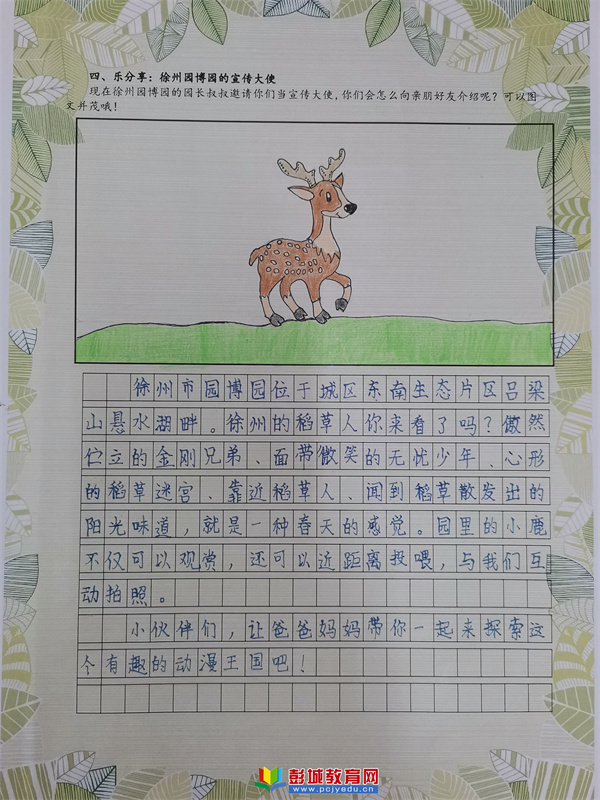 四、乐分享：徐州园博园的宣传大使
现在徐州园博园的园长叔叔邀请你们当宣传大使，你们会怎么向亲朋好友介绍呢？可以图
文并茂哦！
徐州市园博园位于城区东南生态片区吕梁
山悬水湖畔。徐州的稻草人你来看了吗？傲然
伫立的金刚兄弟、面带微笑的无忧少年、心形
的稻草迷宫、靠近稻草人、闻到稻草散发出的
阳光味道，就是一种春天的感觉。园里的小鹿
不仅可以观赏，还可以近距离投喂，与我们互
动拍照。
小伙伴们，让爸爸妈妈带你一起来探索这
个有趣的动漫王国吧！
彭城教育网
www.pcjyedu.cn